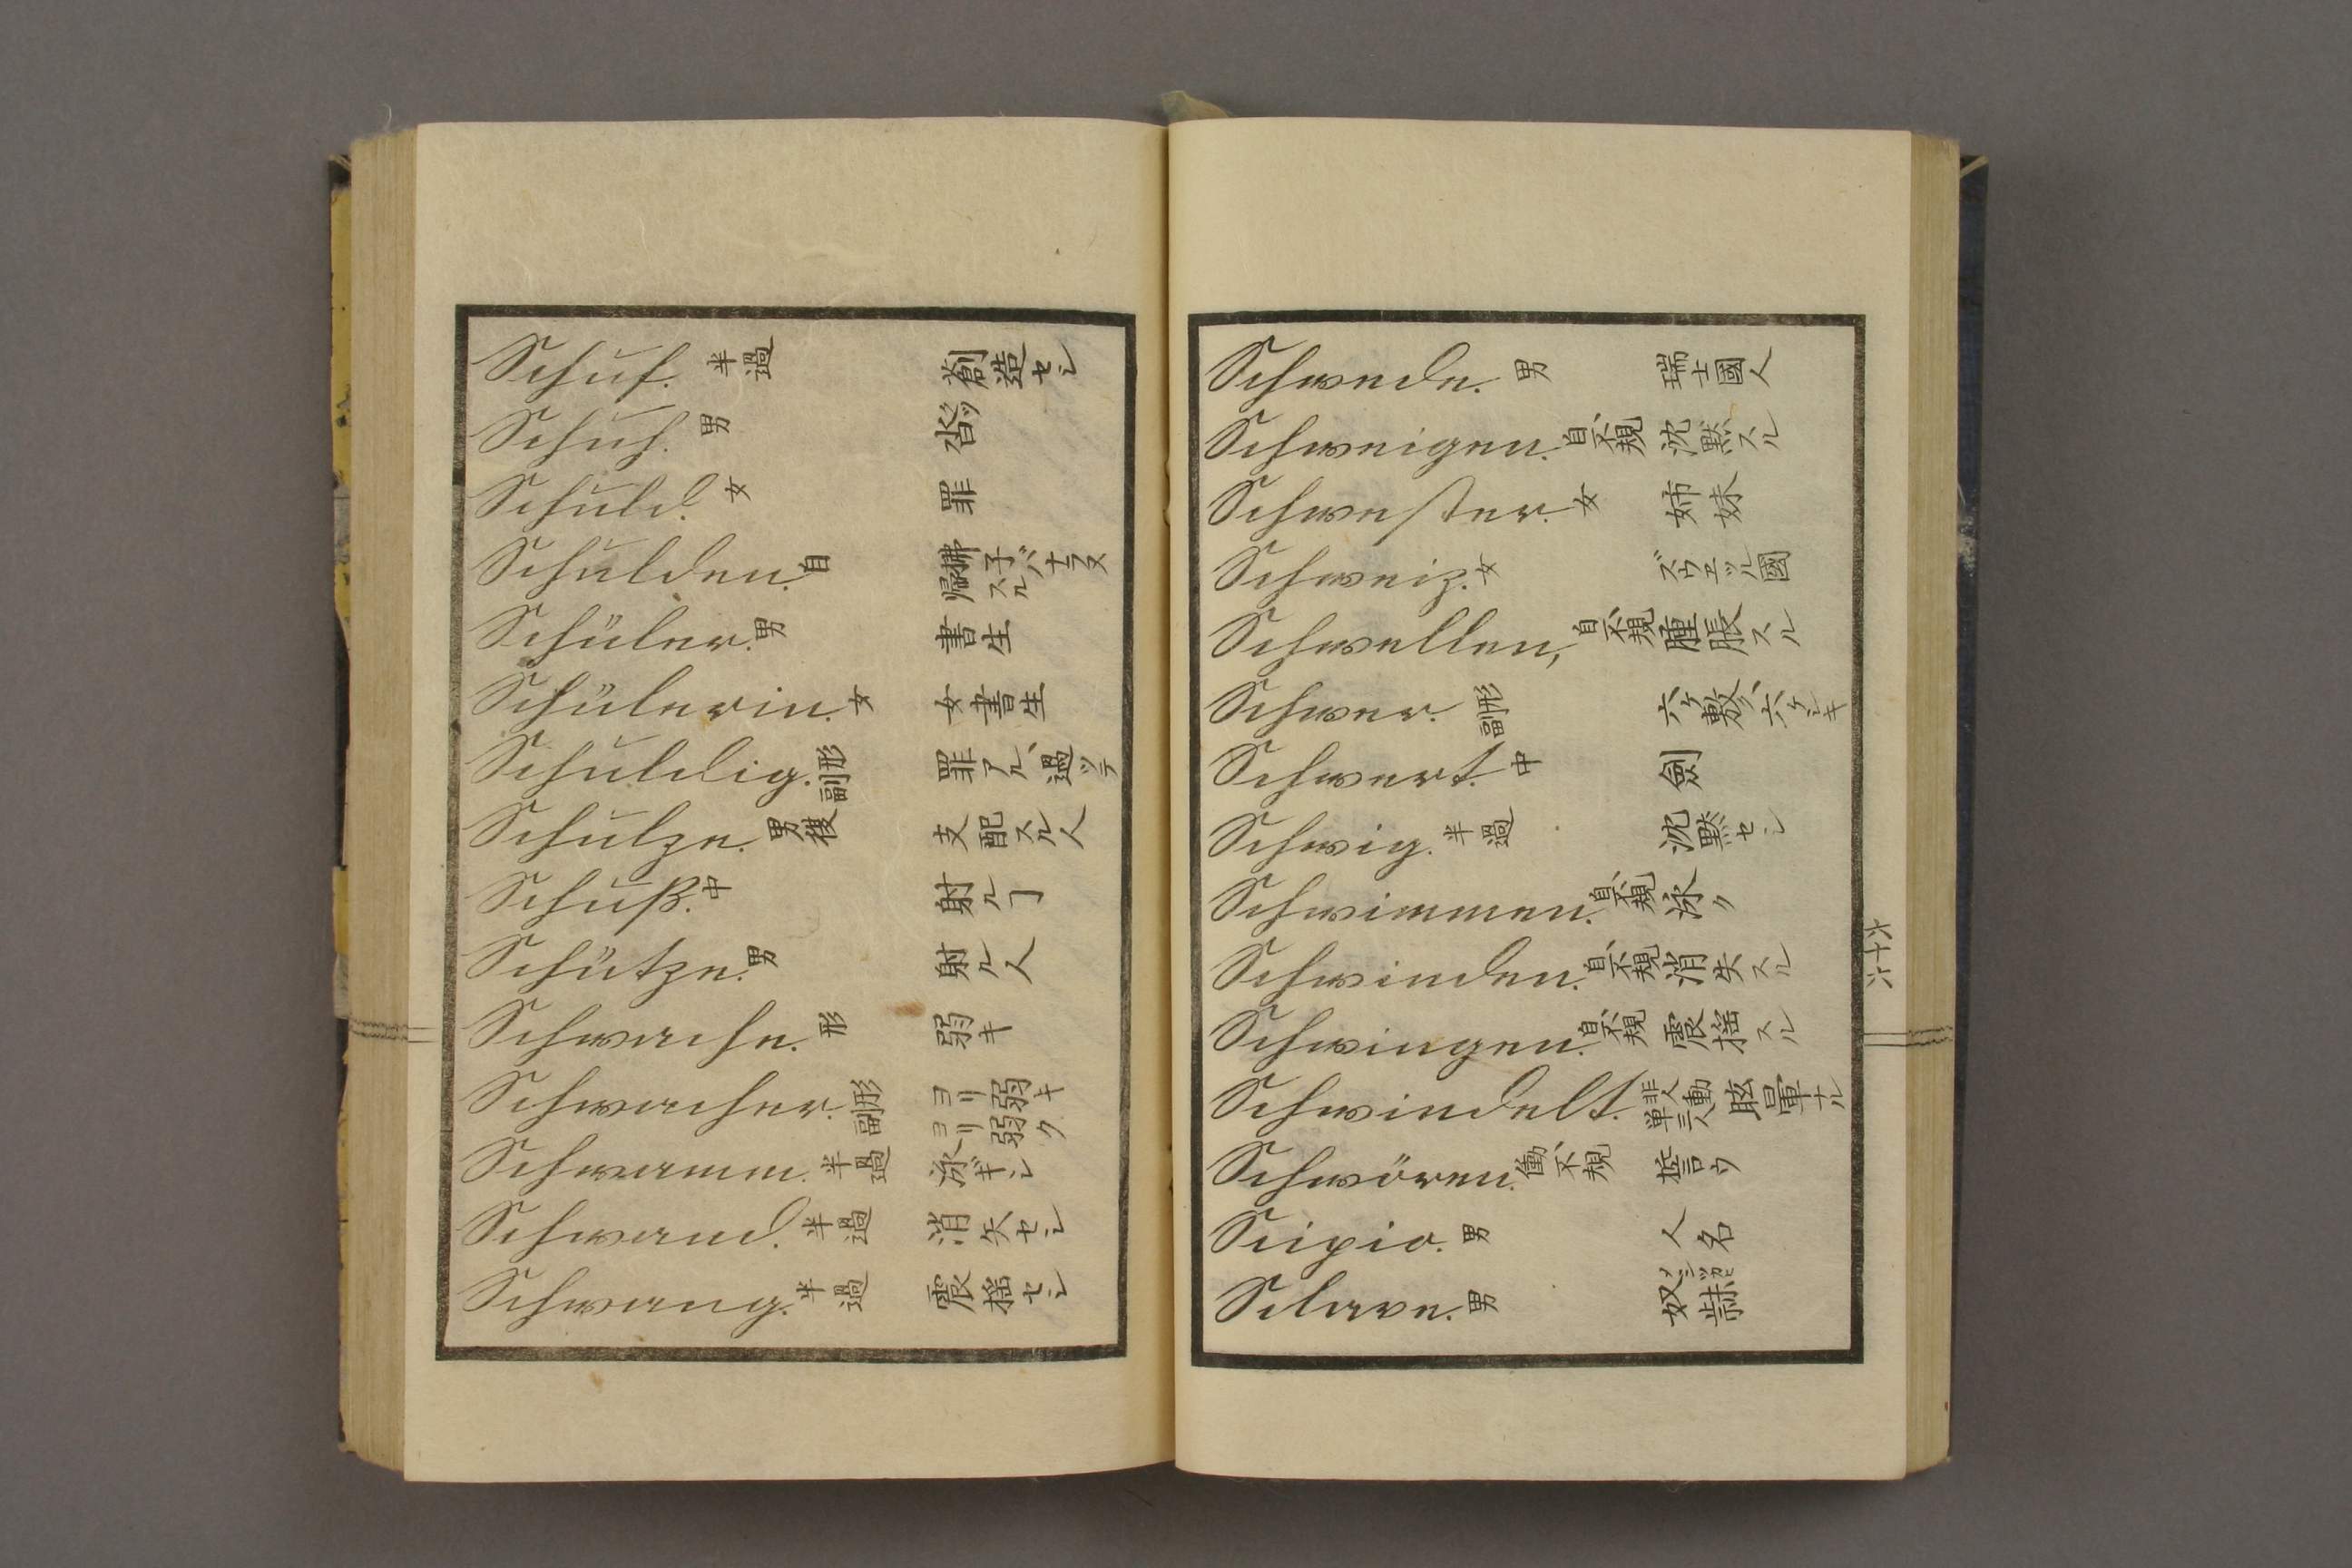 Schuf. 半過 創造セシ
Schuh. 男 沓
Schuld. 女 罪
Schulden. 自
Schüler. 男 書生
Schülerin. 女 女書生
Schuldig. 形副 罪アル、過ツテ
Schulze. 男複 支配スル人
Schuß. 中 射ルヿ
Schütze. 男 射ル人
Schwache. 形 弱キ
Schwacher. 形副 ヨリ弱キ ヨリ弱ク
Schwamm. 半過 泳ギシ
Schwand. 半過 消矢セシ
Schwang. 半過 震揺セシ
Schwede. 男 瑞士國人
Schweigen. 自、不規 沈黙スル
Schwester. 女 姉妹
Schweiz. 女 國
Schwellen, 自、不規 腫脹スル
Schwer. 形副 六ケ敷、六ケシキ
Schwert. 中 劍
Schwig. 半過 沈黙セシ
Schwimmen. 自、不規 泳ク
Schwinden. 自、不規 消失スル
Schwingen. 自、不規 震揺スル
Schwindelt. 非人動単三人 眩暈ナル
Schwören. 働、不規 誓ウ
Scipio. 男 人名
Sclave. 男 奴隷
六十六